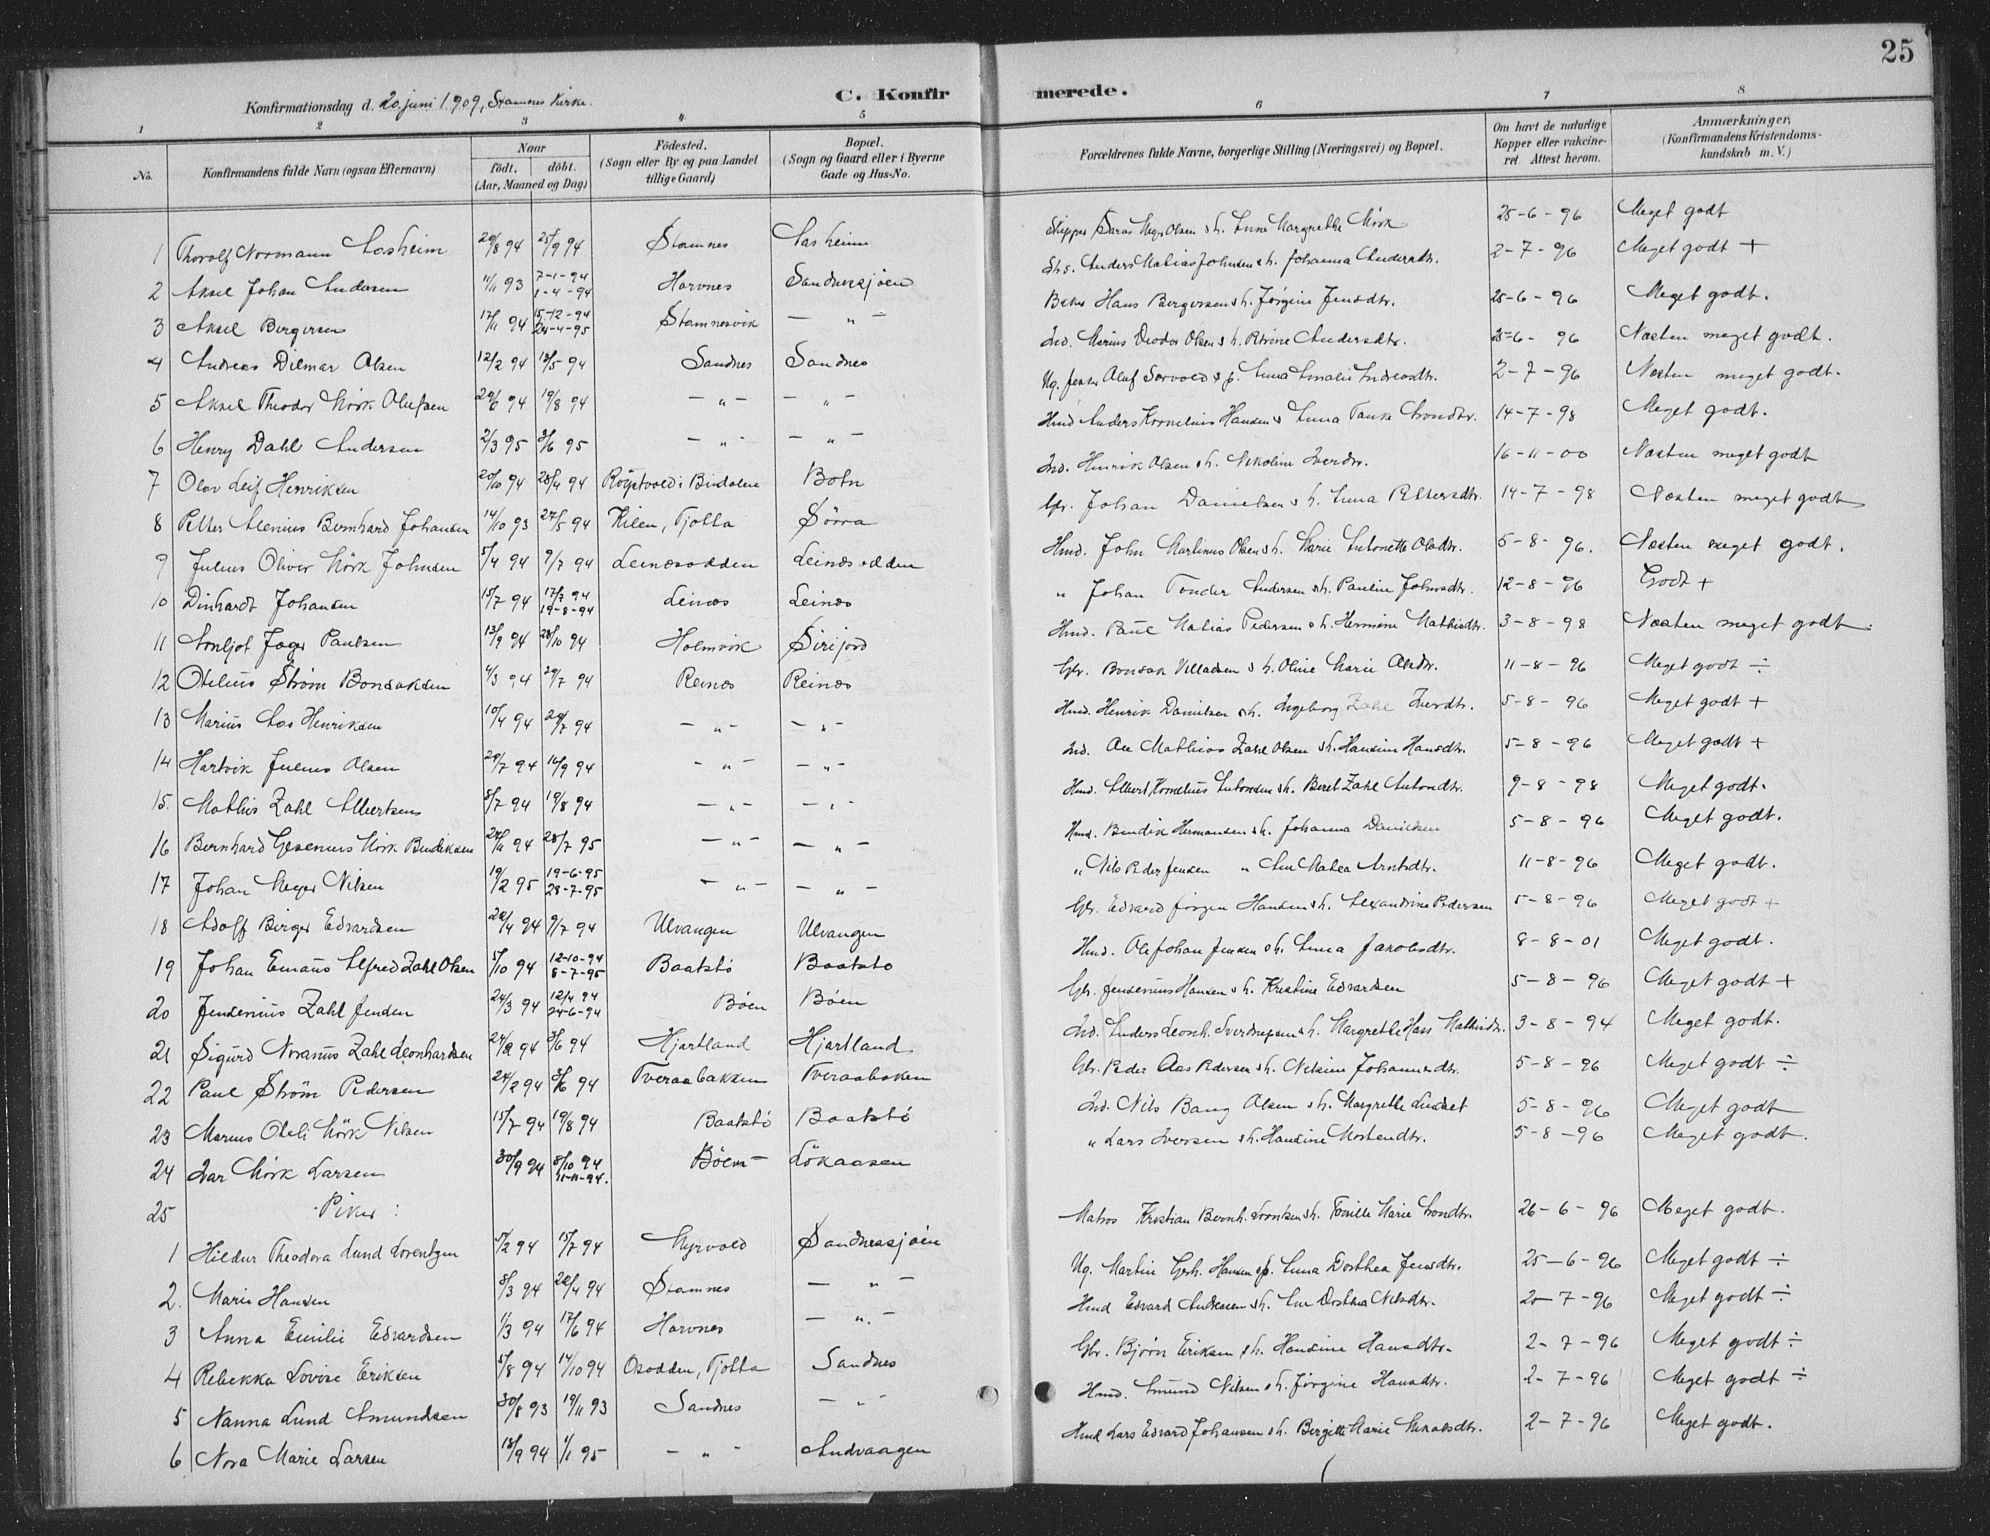 25
Konfirmationsdag d. 20. juni 1909, Stamnes Kirke.
C. Konfirmerede.
1 2 3 4 5 6 7 8
No.
Konfirmandens fulde Navn (ogsaa Efternavn)
Naar
födt. döbt.
(Aar, Maaned og Dag)
Födested.
(Sogn eller By og paa Landet
tillige Gaard)
Bopæl.
(Sogn og Gaard eller i Byerne
Gade og Hus-No.
Forældrenes fulde Navne, borgerlige Stilling (Næringsvei) og Bopæl.
Om havt de naturlige
Kopper eller vakcine-
ret. Attest herom.
Anmærkninger.
(Konfirmandens Kristendoms-
kundskab m. V.)
1 Thorolf Normann Aasheim 29/8 94 25/9 94 Stamnes Aasheim Skipper Olsen Anne Margrethe Mörk 25-6-96 Meget godt
2 Aksel Johan Andersen 11/11 93 7-1-94 1-4-94 Horvnes Sandnessjöen Anders Matias Johnsen s.h. Johanna Andersdtr. 2-7-96 Meget godt +
3 Aksel Bergersen 17/11 94 15-12-94 24-4-95 Stamnesvik — „ — Hans Bergersen s.h. Jørgine Jensdtr. 25-6-96 Meget godt.
4 Andreas Dilmar Olsen 12/2 94 13/5 94 Sandnes Sandnes Ind. Marius Deodor Olsen s.h. Petrine Andersdtr. 25-6-96 Næsten meget godt.
5 Aksel Theodor Mörk Olufsen 29/6 94 19/8 94 — „ — — „ — Ug. Oluf Sørvold Anna Amalie Andreasdtr. 2-7-96 Næsten meget godt.
6 Henry Dahl Andersen 2/3 95 3/6 95 — „ — — „ — Hmd Anders Kornelius Hansen s Anna Tanke Arondtr. 14-7-98 Meget godt.
7 Olav Leif Henriksen 20/10 94 28/4 94 Röytvold i Bindalen Botn Ind. Henrik Olsen s.h. Nikoline Iversdtr. 16-11-00 Næsten meget godt
8 Petter Alenius Bernhard Johansen 14/10 93 27/5 94 Kilen, Tjotta Sörra Gbr. Johan Danielsen s.h. Anna Pettersdtr. 14-7-98 Næsten meget godt
9 Julius Oliver Mörk Johnsen 5/4 94 9/7 94 Leinesodden Leinesodden Hmd. John Martinus Olsen s.h. Marie Antonette Olsdtr. 5-8-96. Næsten meget godt.
10 Dinhardt Johansen 15/7 94 17/7 94 19-8-94 Leines Leines „ Johan Tonder Andersen s.h. Pauline Johnsdtr. 12-8-96 Godt +
11 Arnljot Jager Paulsen 13/9 94 28/10 94 Holmvik Sirijord Hmd. Paul Matias Pedersen s.h. Hermine Mathisdtr. 3-8-98 Næsten meget godt
12 Otelius Ström Bonsaksen 4/3 94 29/7 94 Reines Reines Gbr. Bonsak Villadsen s.h. Oline Marie Olsdtr. 11-8-96 Meget godt ÷
13 Marius Aas Henriksen 10/4 94 29/7 94 — „ — — „ — Hmd. Henrik Danielsen s.h. Ingeborg Zahl Iversdtr. 5-8-96 Meget godt +
14 Hartvik Julius Olsen 29/7 94 16/9 94 — „ — — „ — Ind. Ole Mathias Zahl Olsen s.h. Hansine Hansdtr. 5-8-96 Meget godt +
15. Mathis Zahl Albertsen 8/7 94 19/8 94 — „ — — „ — Hmd. Albert Kornelius Antonsen s.h. Beret Zahl Antondtr. 9-8-98 Meget godt.
16 Bernhard Gesenius Mörk Bendiksen 24/11 94 28/7 95 — „ — — „ — Hmd. Bendik Hermansen s.h. Johanna Danielsen 5-8-96 Meget godt.
17 Johan Meyer Nilsen 19/2 95 19-6-95 28-7-95 — „ — — „ — „ Nils Peder Jensen „ Ane Matea Arntsdtr. 11-8-96 Meget godt.
18 Adolf Birger Edvardsen 22/4 94 9/7 94 Ulvangen Ulvangen Gbr. Edvard Jörgen Hansen s.h. Alexandrine Pedersen 5-8-96 Meget godt +
19 Johan Emaus Alfred Zahl Olsen 5/10 94 12-10-94 8-7-95 Baatstö Baatstö Hmd. Ole Johan Jensen s.h. Anna Jakobsdtr. 8-8-01 Meget godt.
20 Jensenius Zahl Jensen 24/3 94 12/4 94 24-6-94 Böen Böen Gbr. Jensenius Hansen s.h. Kristine Edvardsen 5-8-96 Meget godt +
21 Sigurd Noranus Zahl Leonhardsen 24/2 94 3/6 94 Hjartland Hjartland Ind. Anders Leonh. Sverdrupsen s.h. Margrethe Hass Mathisdtr. 3-8-94 Meget godt.
22 Paul Ström Pedersen 24/2 94 3/6 94 Tveraabakken Tveraabaken Gbr. Peder Aas Pedersen s.h. Nilsine Johannesdtr. 5-8-96 Meget godt ÷
23 Marius Oteli Mörk Nilsen 15/7 94 19/8 94 Baatstö Baatstö Ind. Nils Bang Olsen s.h. Margrethe 5-8-96 Meget godt
24 Ivar Mörk Larsen 30/9 94 8/10 94 11-11-94. Böen Lökaasen „ Lars Iversen s.h. Hansine Mostendtr. 5-8-96 Meget godt.
25 Piker:
1 Hildur Theodora Lund Lorentzen 5/2 94 15/7 94 Myrvold Sandnessjöen Matros Kristian Bernh. Lorntsen s.h. Tomille Marie Arondtr. 26-6-96 Meget godt.
2. Marie Hansen 8/3 94 22/4 94 Stamnes — „ — Ug. Martin Gerh. Hansen Anna Dorthea Jensdtr. 25-6-96 Meget godt ÷
3 Anna Emilie Edvardsen 1/3 94 17/6 94 Horvnes — „ — Hmd Edvard Andreasen s.h. Ane Dorthea Nilsdtr. 20-7-96 Meget godt ÷
4 Rebekka Lovise Eriksen 5/8 94 14/10 94 Osodden, Tjotta Sandnes Gbr. Bjørn Eriksen s.h. Hansine Hansdtr. 2-7-96 Meget godt ÷
5 Nanna Lund Amundsen 30/8 93 19/11 93 Sandnes — „ Hmd. Amund Nilsen s.h. Jørgine Hansdtr. 2-7-96 Meget godt ÷
6 Nora Marie Larsen 18/9 94 1/1 95 — „ — Andvaagen Hmd Lars Edvard Johansen s.h. Bergitte Marie 2-7-96 Meget godt.